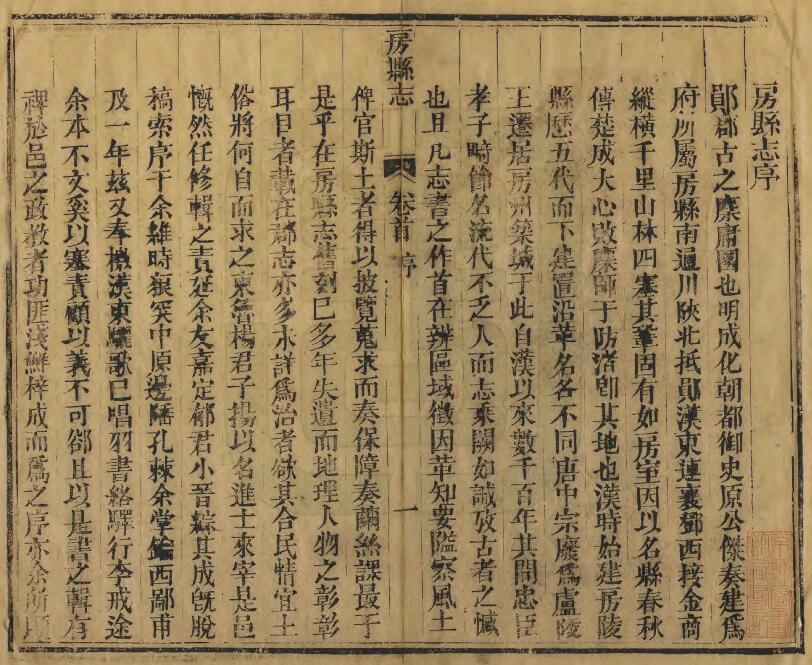 房縣志序
鄖郡古之麇庸國也明成化朝都御史原公傑奏建爲
府所屬房縣南通川陝北抵鄖漢東連襄鄧西接金商
縱橫千里山林四塞其鞏固有如房室因以名縣春秋
傳楚成大心敗麇師于防渚卽其地也漢時始建房陵
縣歷五代而下建置沿革名各不同唐中宗廢爲廬陵
王遷居房州築城于此自漢以來數千百年其間忠臣
孝子時節名流代不乏人而志乘闕如誠攷古者之憾
也且凡志書之作首在辨區域徵因革知要隘察風土
房縣志
卷首 序
一
俾官斯土者得以披覽蒐求而奏保障奏繭絲課最于
是乎在房縣志舊刻巳多年失遺而地理人物之彰彰
耳目者載在郡志亦多未詳爲治者欲其合民情宜土
俗將何自而求之東魯楊君子揚以名進士來宰是邑
慨然任修輯之責延余友嘉定郁君小晉綜其成旣脫
稿索序于余維時狼筴中原邊陲孔棘余堂綸西鄙甫
及一年兹又奉檄漢東驪歌巳唱羽書絡驛行李戒途
余本不文奚以塞責顧以義不可郤且以是書之輯有
裨於邑之政教者功匪淺鮮梓成而爲之序亦余所